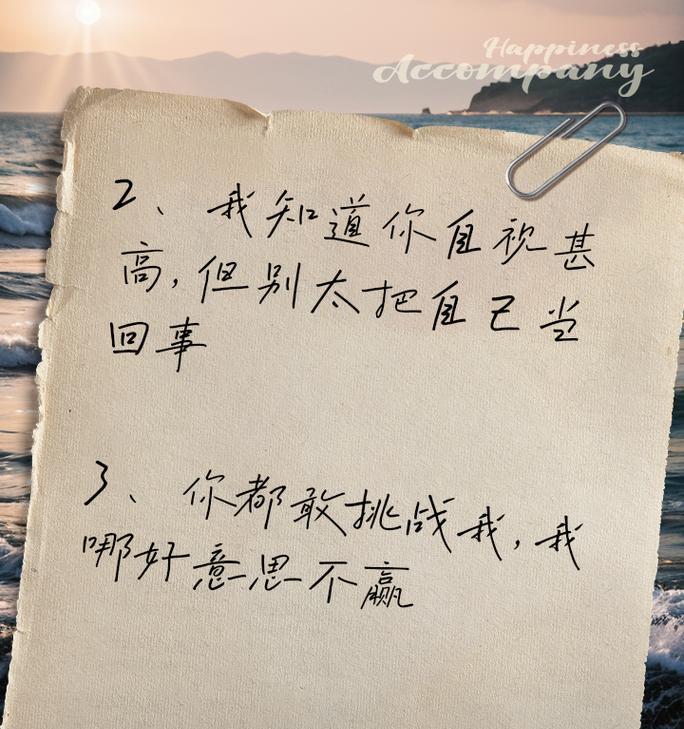 Happiness
Accompany
2、我知道你自视甚
高,但别太把自己当
回事
3、你都敢挑战我,我
哪好意思不赢